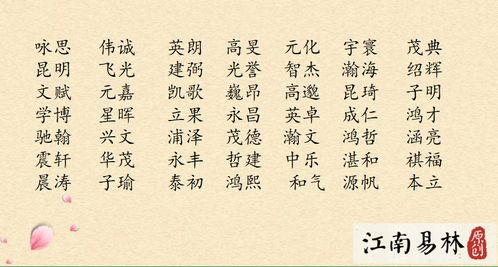 咏思 伟诚 英朗 高旻 元化 宇寰 茂典
昆明 飞光 建弼 光誉 智杰 瀚海 绍辉
文赋 元嘉 凯歌 巍昂 高邈 昆琦 子明
学博 星晖 立果 永昌 英卓 成仁 鸿才
驰翰 兴文 浦泽 茂德 瀚文 鸿哲 涵亮
震轩 华茂 永丰 哲建 中乐 湛和 祺福
晨涛 子瑜 泰初 鸿熙 和气 源帆 本立
江南易林
原创